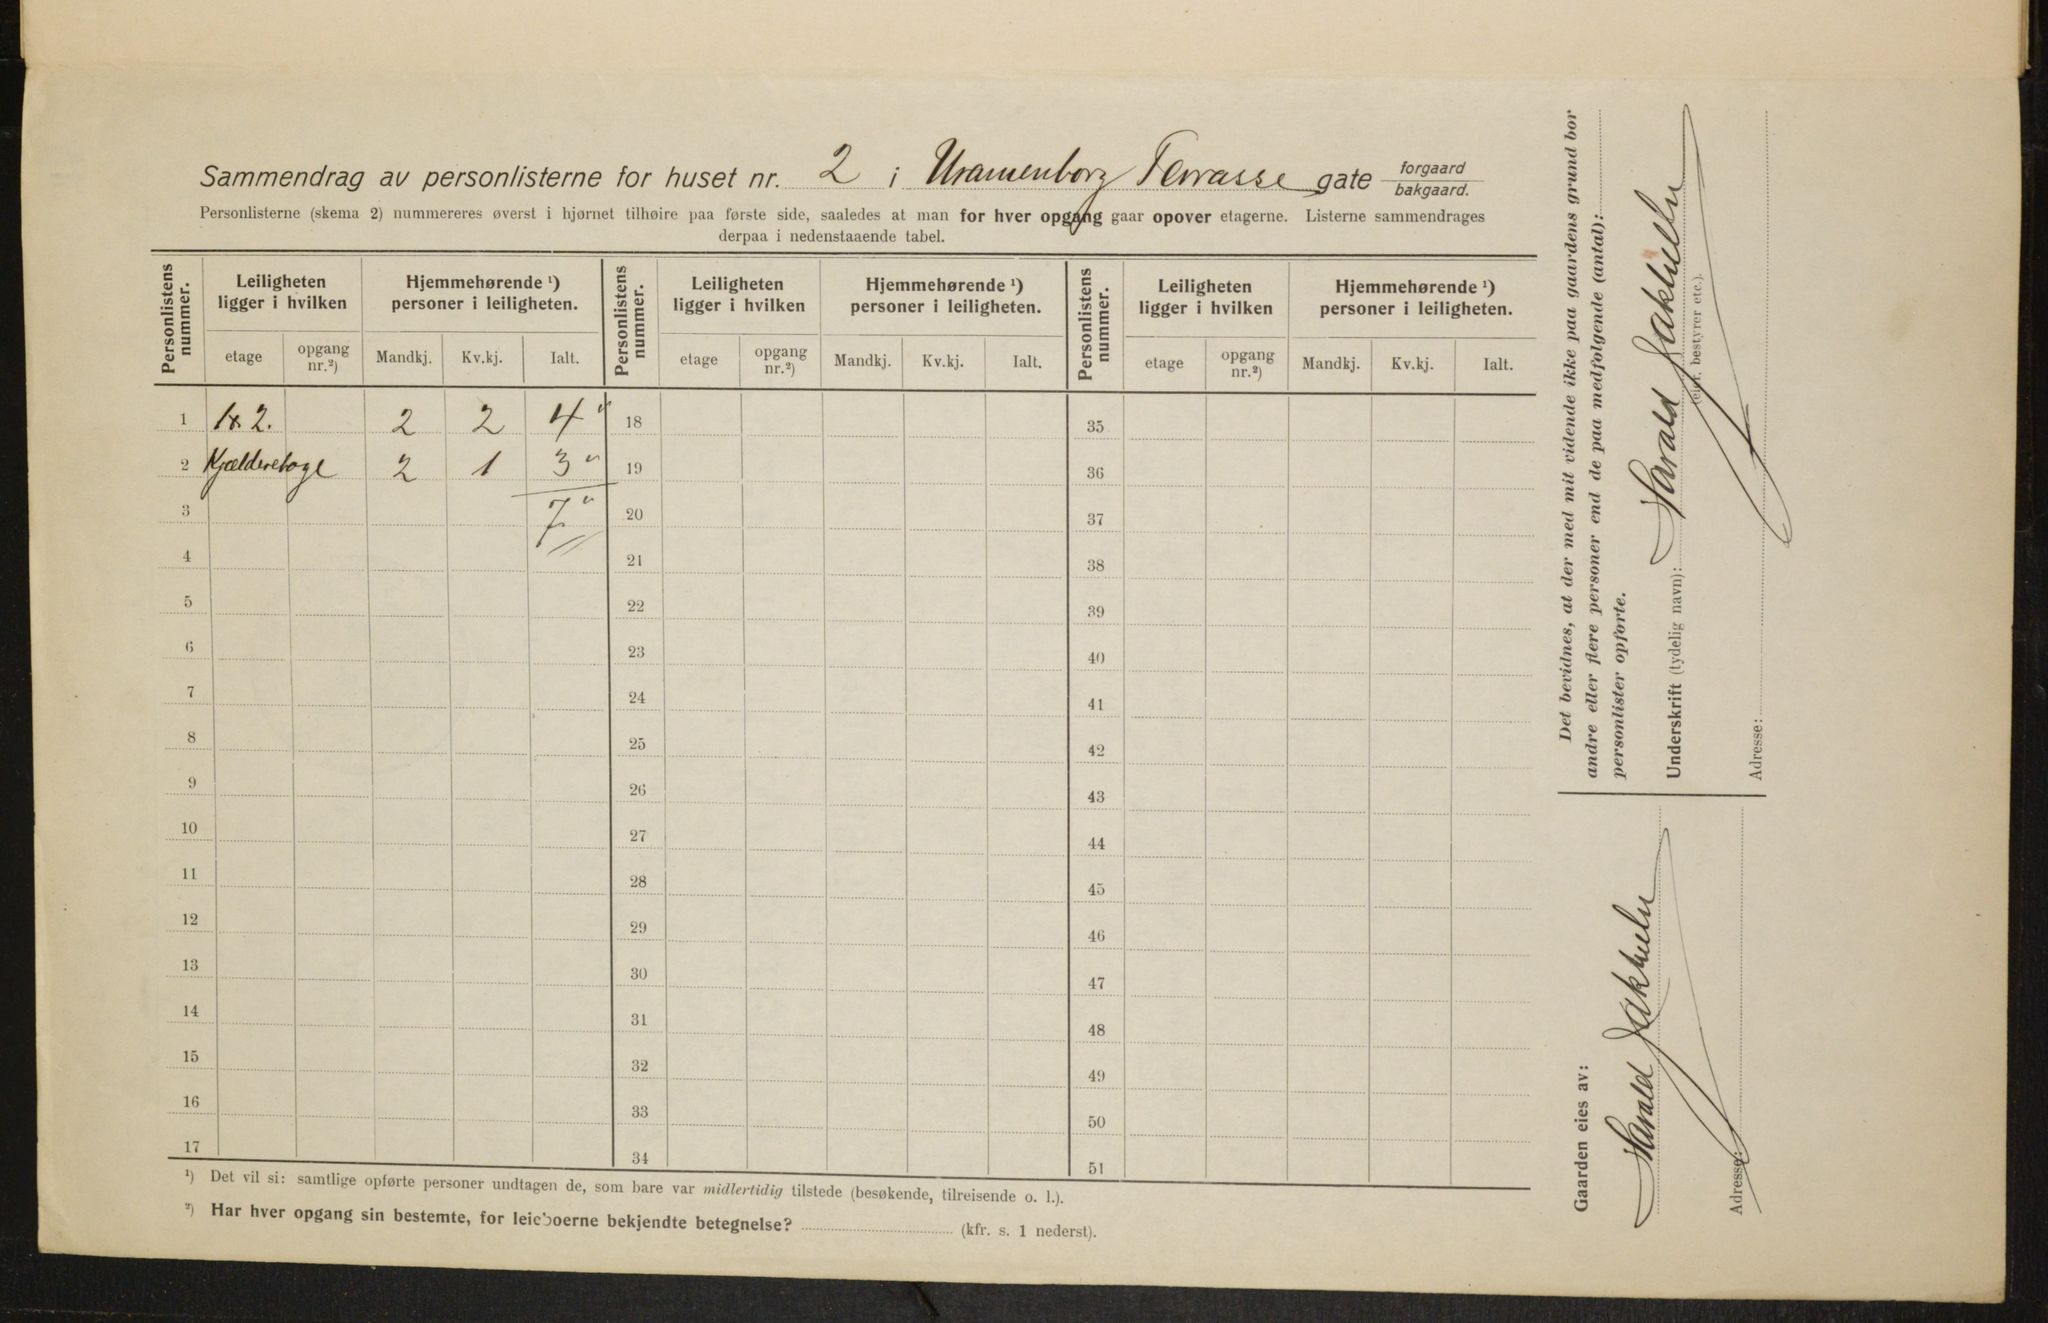 Sammendrag av personlisterne for huset nr. 2 i Uranienborg Terrasse gate forgaard bakgaard.
Personlisterne (skema 2) nummereres øverst i hjørnet tilhøire paa første side, saaledes at man for hver opgang gaar opover etagerne. Listerne sammendrages
derpaa i nedenstaaende tabel.
Personlistens nummer. Leiligheten ligger i hvilken Hjemmehørende ¹) personer i leiligheten. Personlistens nummer. Leiligheten ligger i hvilken Hjemmehørende ¹) personer i leiligheten. Personlistens nummer. Leiligheten ligger i hvilken Hjemmehørende ¹) personer i leiligheten.
etage opgang nr.²) Mandkj. Kv.kj. Ialt. etage opgang nr.²) Mandkj. Kv.kj. Ialt. etage opgang nr.²) Mandkj. Kv.kj. Ialt.
1 2. 2 2 4 18 35
2 Kjælderetage 2 1 3 19 36
3 7 20 37
4 21 38
5 22 39
6 23 40
7 24 41
8 25 42
9 26 43
10 27 44
11 28 45
12 29 46
13 30 47
14 31 48
15 32 49
16 33 50
17 34 51
¹) Det vil si: samtlige opførte personer undtagen de, som bare var midlertidig tilstede (besøkende, tilreisende o. l.).
²) Har hver opgang sin bestemte, for leieboerne bekjendte betegnelse? (kfr. s. 1 nederst).
Det bevidnes, at der med mit vidende ikke paa gaardens grund bor
andre eller flere personer end de paa medfølgende (antal):
personlister opførte.
Underskrift (tydelig navn): Harald
(eier, bestyrer etc.).
Adresse:
Gaarden eies av:
Harald
Adresse: